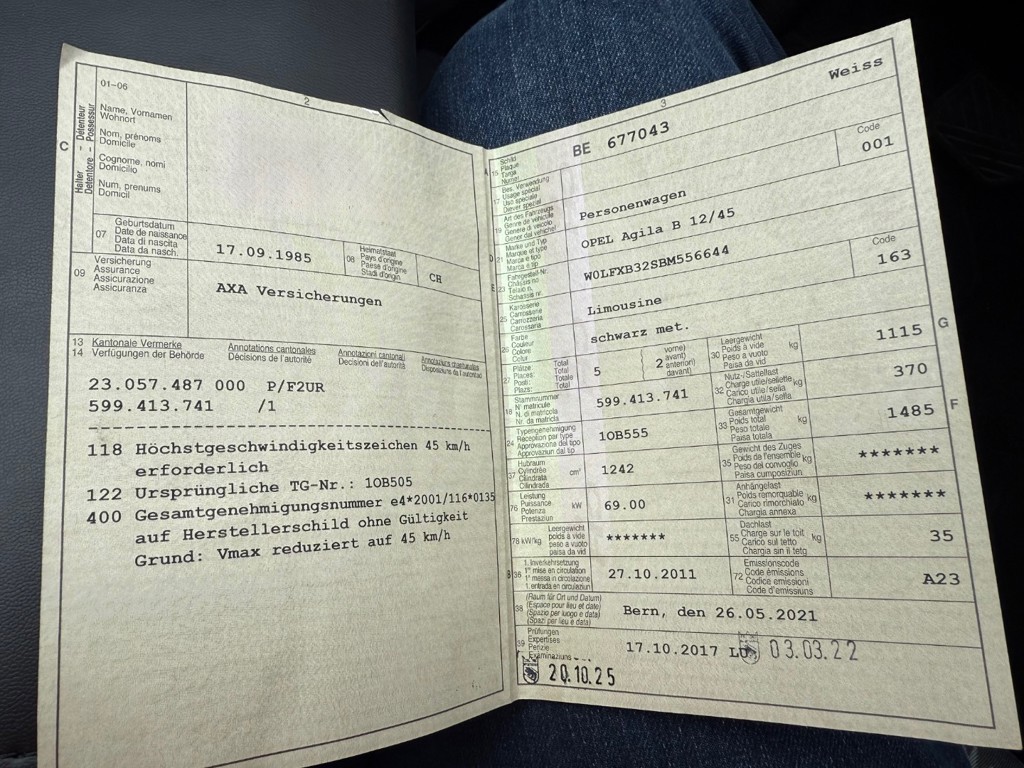 2
01-06
C
Halter - Détenteur
Detentore - Possessur
Name, Vornamen
Wohnort
Nom, prénoms
Domicile
Cognome, nomi
Domicilio
Num, prenums
Domicil
07
Geburtsdatum
Date de naissance
Data di nascita
Data da nasch.
17.09.1985
08
Heimatstaat
Pays d'origine
Paese d'origine
Stadi d'origin
CH
09
Versicherung
Assurance
Assicurazione
Assicuranza
AXA Versicherungen
13 Kantonale Vermerke
14 Verfügungen der Behörde
Annotations cantonales
Décisions de l'autorité
Annotazioni cantonali
Decisioni dell'autorità
23.057.487 000 P/F2UR
599.413.741 /1
118 Höchstgeschwindigkeitszeichen 45 km/h
erforderlich
122 Ursprüngliche TG-Nr.: 1OB505
400 Gesamtgenehmigungsnummer e4*2001/116*0135
auf Herstellerschild ohne Gültigkeit
Grund: Vmax reduziert auf 45 km/h
3
Weiss
A
15
Schild
Plaque
Targa
Numer
BE 677043
17
Bes. Verwendung
Usage spécial
Uso speciale
Diever spezial
Code
001
19
Art des Fahrzeugs
Genre de véhicule
Genere di veicolo
Gener dal vehichel
Personenwagen
D
21
Marke und Typ
Marque et type
Marca e tipo
Marca e tip
OPEL Agila B 12/45
E
23
Fahrgestell-Nr.
Châssis no
Telaio n.
Schassis nr.
W0LFXB32SBM556644
25
Karosserie
Carrosserie
Carrozzeria
Carossaria
Limousine
Code
163
26
Farbe
Couleur
Colore
Colur
schwarz met.
27
Plätze: Total
Places: Total
Posti: Totale
Plazs: Total
5
2
vorne)
avant)
anteriori)
davant)
30
Leergewicht
Poids à vide
Peso a vuoto
Paisa da vid
kg
1115
G
18
Stammnummer
N° matricule
N. di matricola
Nr. da matricla
599.413.741
32
Nutz-/Sattellast
Charge utile/sellette
Carico utile/sella
Chargia utila/sella
kg
370
24
Typengenehmigung
Réception par type
Approvazione del tipo
Approvaziun dal tip
1OB555
33
Gesamtgewicht
Poids total
Peso totale
Paisa totala
kg
1485
F
37
Hubraum
Cylindrée
Cilindrata
Cilindrada
cm³
1242
35
Gewicht des Zuges
Poids de l'ensemble
Peso del convoglio
Paisa cumposiziun
kg
*******
76
Leistung
Puissance
Potenza
Prestaziun
kW
69.00
31
Anhängelast
Poids remorquable
Carico rimorchiato
Chargia annexa
kg
*******
78 kW/kg
Leergewicht
poids à vide
peso a vuoto
paisa da vid
*******
55
Dachlast
Charge sur le toit
Carico sul tetto
Chargia sin il tetg
kg
35
B
36
1. Inverkehrsetzung
1re mise en circulation
1a messa in circolazione
1. entrada en circulaziun
27.10.2011
72
Emissionscode
Code émissions
Codice emissioni
Code d'emissiuns
A23
38
(Raum für Ort und Datum)
(Espace pour lieu et date)
(Spazio per luogo e data)
(Spazi per lieu e data)
Bern, den 26.05.2021
39
Prüfungen
Expertises
Perizie
Examinaziuns
17.10.2017 LU
03.03.22
20.10.25